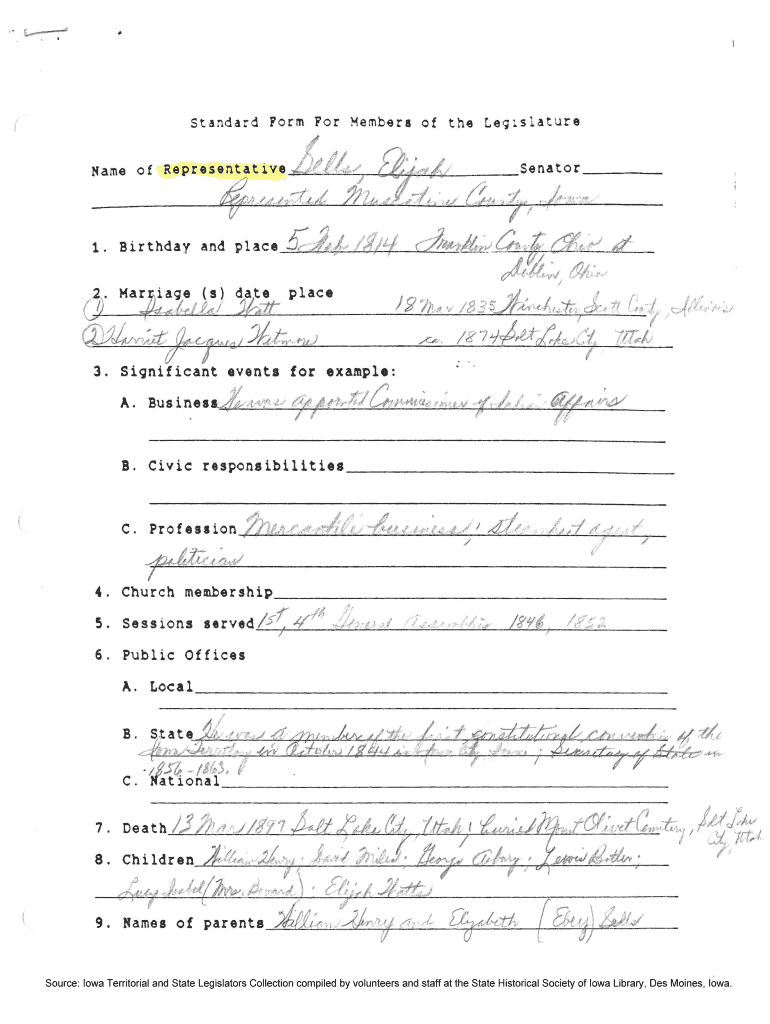 Standard Form For Members of the Legislature
Name of Representative Sells, Elijah Senator
Represented Muscatine County, Iowa
1. Birthday and place 5 Feb 1814 Franklin County Ohio at
Dublin, Ohio
2. Marriage (s) date place
(1) Isabella Watt 18 Mar 1835 Winchester, Scott County, Illinois
(2) Harriet Jacques Wetmore ca. 1874 Salt Lake City Utah
3. Significant events for example:
A. Business He was appointed Commissioner of Indian Affairs
B. Civic responsibilities
C. Profession Mercantile business; steamboat agent,
politician
4. Church membership
5. Sessions served 1st, 4th General Assemblies 1846, 1852
6. Public Offices
A. Local
B. State He was a member of the first constitutional convention of the
Iowa Territory in October 1844 in Iowa City, Iowa; Secretary of State in
1856-1863.
C. National
7. Death 13 Mar 1897 Salt Lake City, Utah; buried Mount Olivet Cemetery, Salt Lake
City, Utah
8. Children William Henry; David Miles; George Asbury; Lewis Butler;
Lucy Isabel (Mrs. Bovard); Elijah Watts
9. Names of parents William Henry and Elizabeth (Ebey) Sells
Source: Iowa Territorial and State Legislators Collection compiled by volunteers and staff at the State Historical Society of Iowa Library, Des Moines, Iowa.